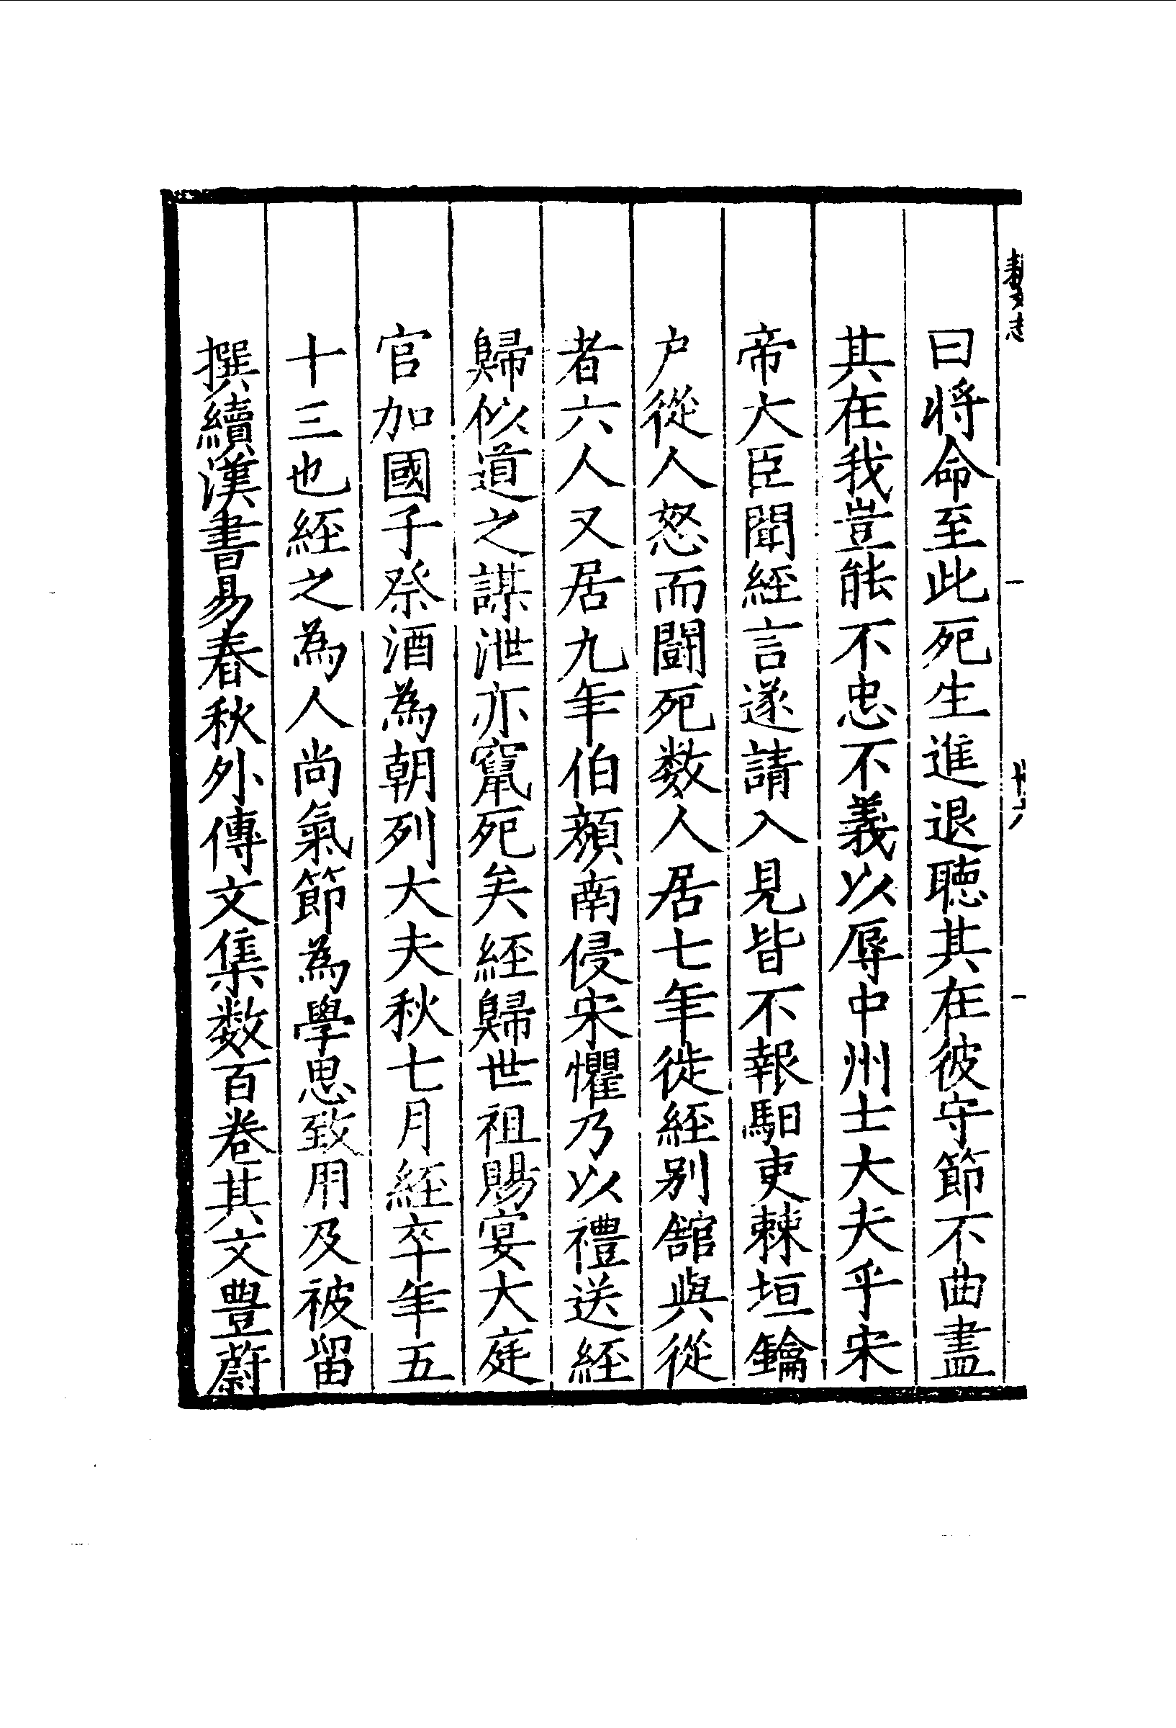 曰將命至此死生進退聽其在彼守節不曲盡
其在我豈能不忠不義以辱中州士大夫乎宋
帝大臣聞經言遂請入見皆不報馹吏棘垣鑰
户從人怒而鬪死数人居七年徙經别舘與從
者六人又居九年伯顔南侵宋懼乃以禮送經
歸似道之謀泄亦竄死矣經歸世祖賜宴大庭
官加國子祭酒為朝列大夫秋七月經卒年五
十三也經之為人尚氣節為學思致用及被留
撰續漢書易春秋外傳文集数百卷其文豊蔚